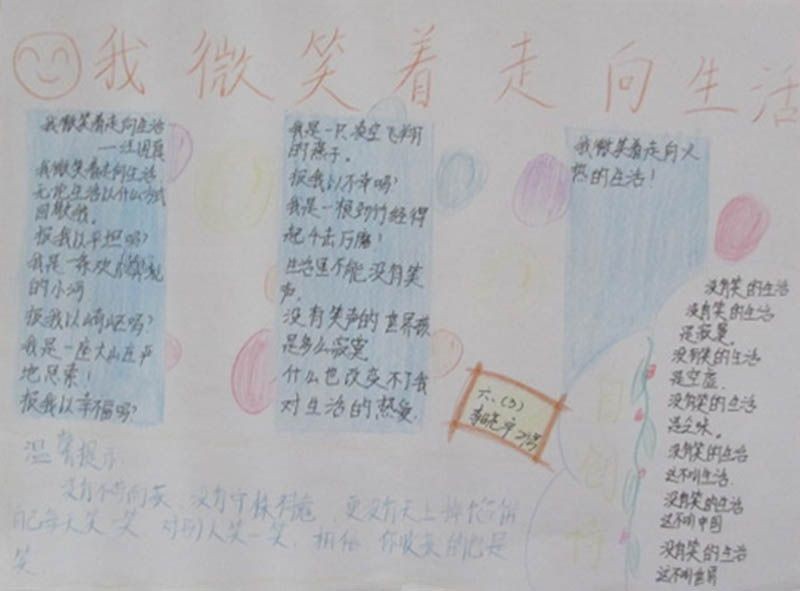 我微笑着走向生活
我微笑着走向生活
——汪国真
我微笑着走向生活
无论生活以什么方式
回敬我。
报我以平坦吗?
我是一条欢乐奔流
的小河
报我以崎岖吗?
我是一座大山庄严
地思索!
报我以幸福吗?
我是一只凌空飞翔
的燕子。
报我以不幸吗?
我是一根劲竹经得
起千击万磨!
生活里不能没有笑
声。
没有笑声的世界该
是多么寂寞
什么也改变不了我
对生活的热爱
我微笑着走向火
热的生活!
六、(3)
自创诗
没有笑的生活
没有笑的生活
是寂寞
没有笑的生活
是空虚
没有笑的生活
是乏味。
没有笑的生活
这不叫生活
没有笑的生活
这不叫中国
没有笑的生活
这不叫世界
温馨提示
没有不劳而获,没有守株待兔,更没有天上掉馅饼
每天笑一笑,对别人笑一笑,相信,你收获的也是
笑